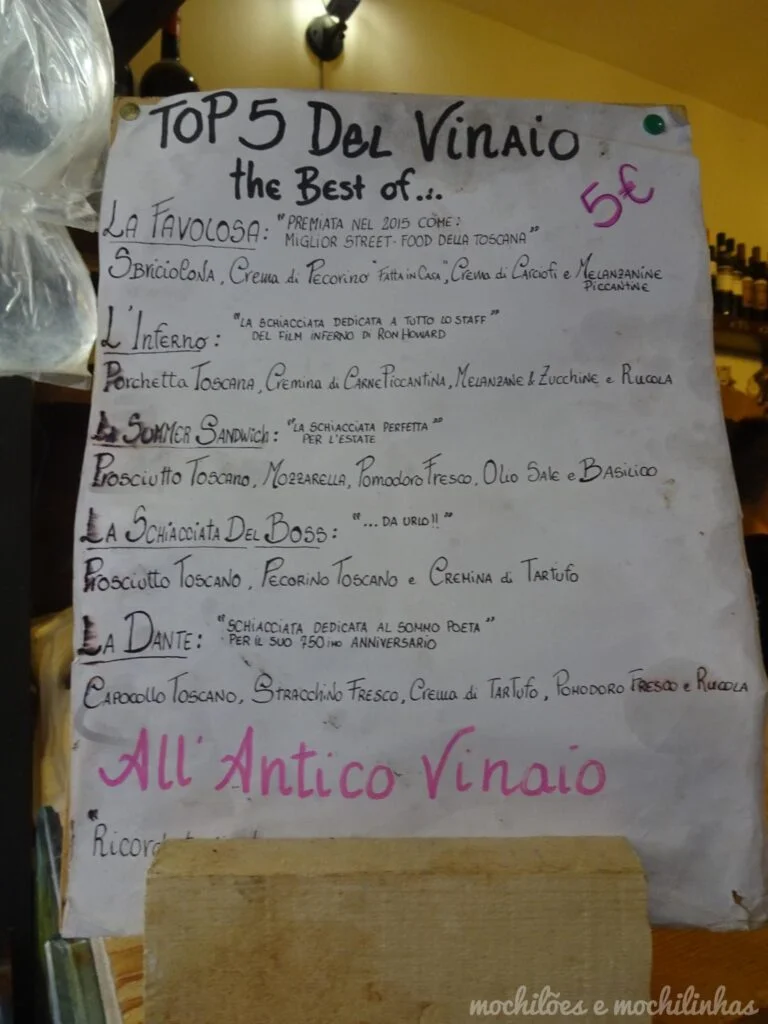 TOP 5 DEL VINAIO
the BEST of...
5€
LA FAVOLOSA: "PREMIATA NEL 2015 COME:
MIGLIOR STREET-FOOD DELLA TOSCANA"
SBRICIOLONA, CREMA di PECORINO "FATTA IN CASA", CREMA di CARCIOFI e MELANZANINE
PICCANTINE
L'INFERNO: "LA SCHIACCIATA DEDICATA A TUTTO LO STAFF"
DEL FILM INFERNO DI RON HOWARD
PORCHETTA TOSCANA, CREMINA di CARNE PICCANTINA, MELANZANE & ZUCCHINE e RUCOLA
SUMMER SANDWICH: "LA SCHIACCIATA PERFETTA"
PER L'ESTATE
PROSCIUTTO TOSCANO, MOZZARELLA, POMODORO FRESCO, OLIO SALE e BASILICO
LA SCHIACCIATA DEL BOSS: "... DA URLO!!"
PROSCIUTTO TOSCANO, PECORINO TOSCANO e CREMINA di TARTUFO
LA DANTE: "SCHIACCIATA DEDICATA AL SOMMO POETA"
PER IL SUO 750imo ANNIVERSARIO
CAPOCOLLO TOSCANO, STRACCHINO FRESCO, CREMA di TARTUFO, POMODORO FRESCO e RUCOLA
All'Antico Vinaio
mochilões e mochilinhas